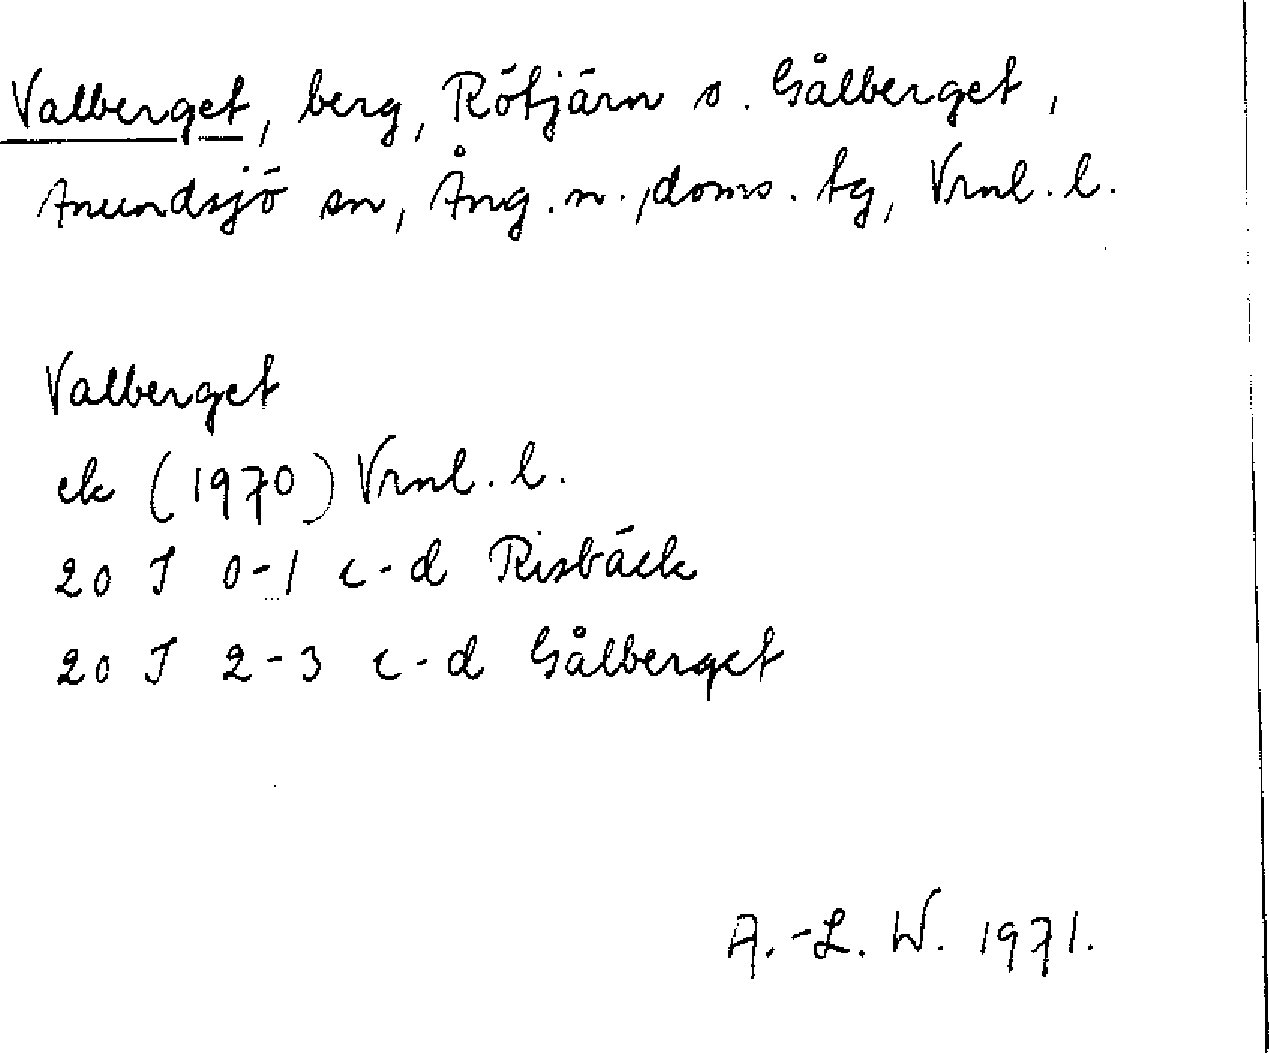 Valberget, berg, Rötjärn o. Gålberget,
Anundsjö sn, Ång. n. doms. tg, Vrnl. l.
Valberget
ek (1970) Vrnl. l.
20 J 0-1 c-d Risbäck
20 J 2-3 c-d Gålberget
A.-L. W. 1971.